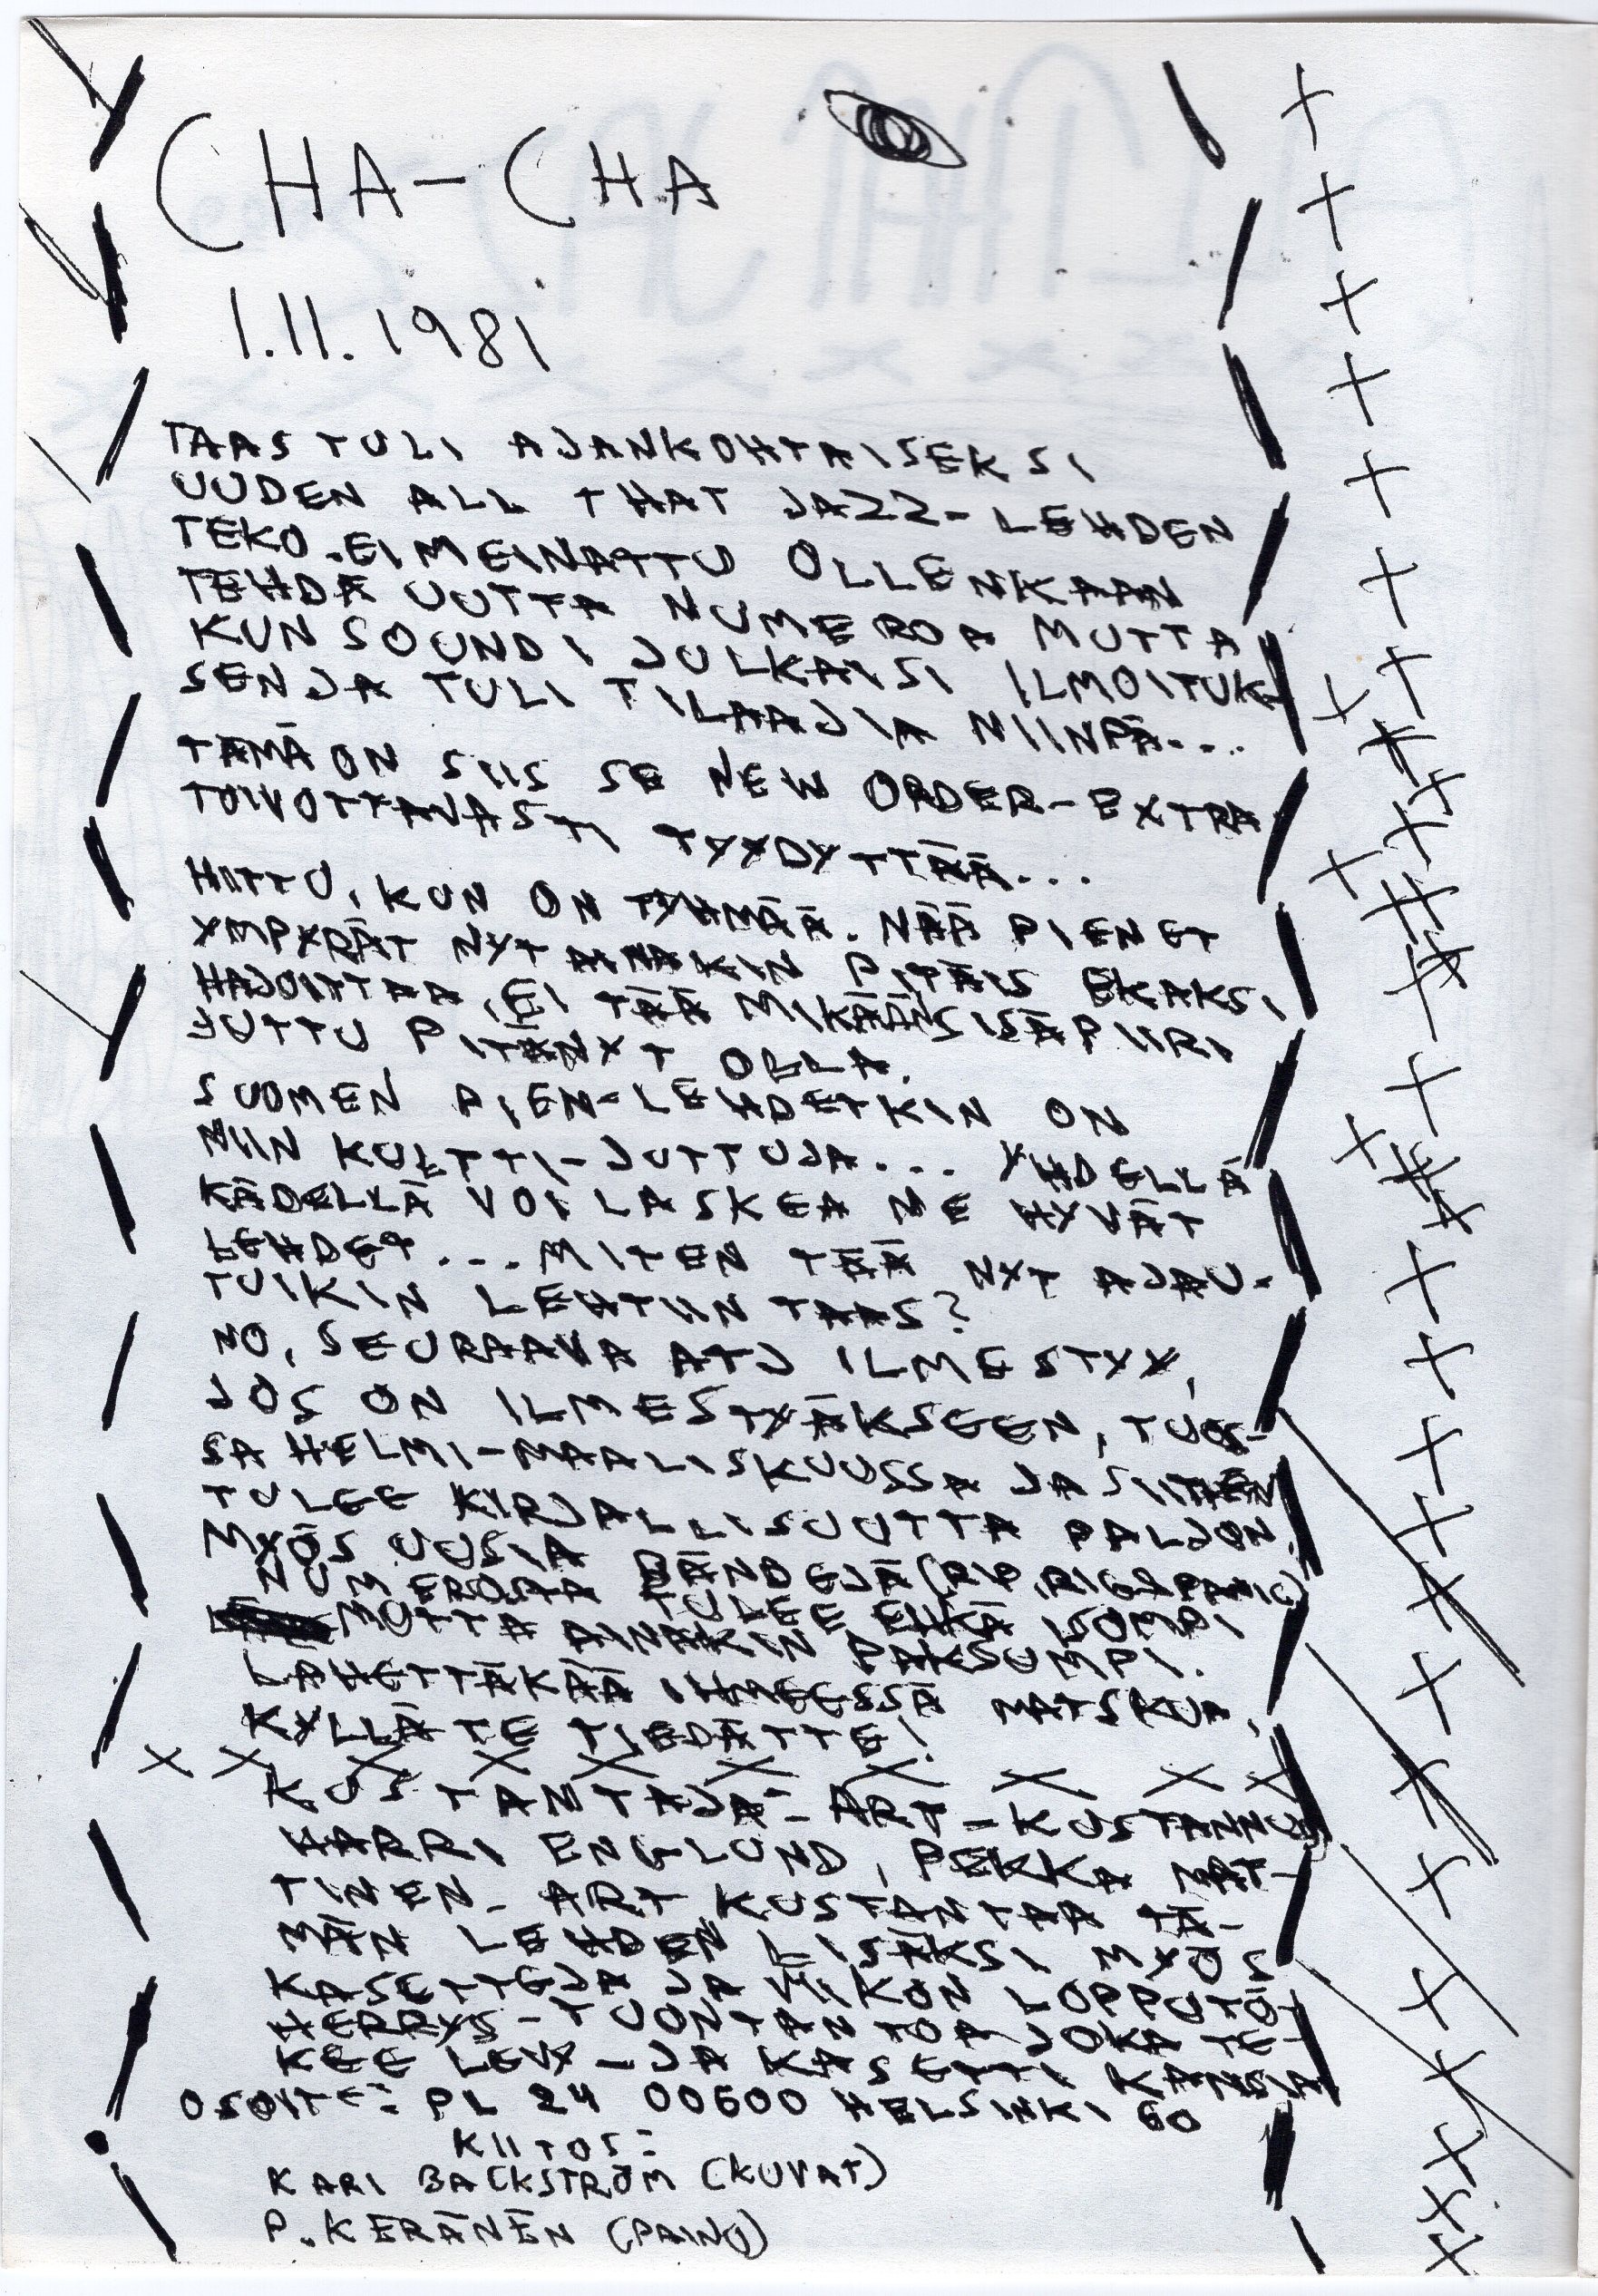 CHA-CHA
1.11.1981
TAAS TULI AJANKOHTAISEKSI
UUDEN ALL THAT JAZZ-LEHDEN
TEKO. EI MEINATTU OLLENKAAN
TEHDÄ UUTTA NUMEROA MUTTA
KUN SOUNDI JULKAISI ILMOITUK-
SEN JA TULI TILAAJIA NIINPÄ...
TÄMÄ ON SIIS SE NEW ORDER-EXTRA
TOIVOTTAVASTI TYYDYTTÄÄ...
HIITTU, KUN ON TYHMÄÄ. NÄÄ PIENET
YMPYRÄT NYT AINAKIN PITÄIS EKAKSI
HAJOITTAA, EI TÄÄ MIKÄÄN SISÄPIIRI
JUTTU PITÄNYT OLLA.
SUOMEN PIEN-LEHDETKIN ON
NIIN KULTTI-JUTTUJA... YHDELLÄ
KÄDELLÄ VOI LASKEA NE HYVÄT
LEHDET... MITEN TÄÄ NYT AJAU-
TUIKIN LEHTIIN TAAS?
NO, SEURAAVA ATJ ILMESTYY,
JOS ON ILMESTYÄKSEEN, TUOS-
SA HELMI-MAALISKUUSSA JA SIIHEN
TULEE KIRJALLISUUTTA PALJON,
MYÖS UUSIA BÄNDEJÄ (RIP, RIG & PANIC)
NUMEROSTA TULEE EHKÄ ISOMPI
MUTTA AINAKIN PAKSUMPI.
LÄHETTÄKÄÄ IHMEESSÄ MATSKUA,
KYLLÄ TE TIEDÄTTE!
X X X X X X X X X X
KUSTANTAJA - ART-KUSTANNUS
HARRI ENGLUND, PEKKA MAT-
TINEN - ART KUSTANTAA TÄ-
MÄN LEHDEN LISÄKSI MYÖS
KASETTEJA JA VIIKON LOPPUTÖ-
HERRYS-TUONTANTOA JOKA TE-
KEE LEVY- JA KASETTI KANSIA
OSOITE: PL 24 00600 HELSINKI 60
KIITOS:
KARI BACKSTRÖM (KUVAT)
P. KERÄNEN (PAINO)